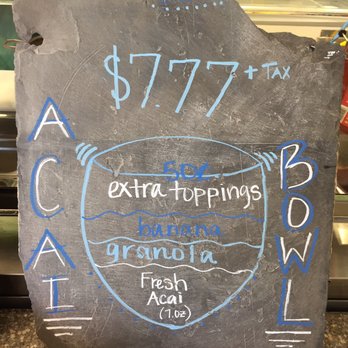 $7.77 + TAX
ACAI
BOWL
50¢
extra toppings
banana
granola
Fresh
Acai
(7.oz)